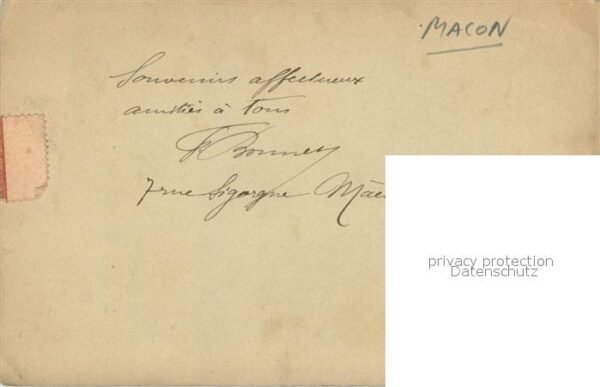 MACON
Souvenirs affectueux
amitiés à tous
Bonnet
7 rue Sigorgne Mâc
privacy protection
Datenschutz